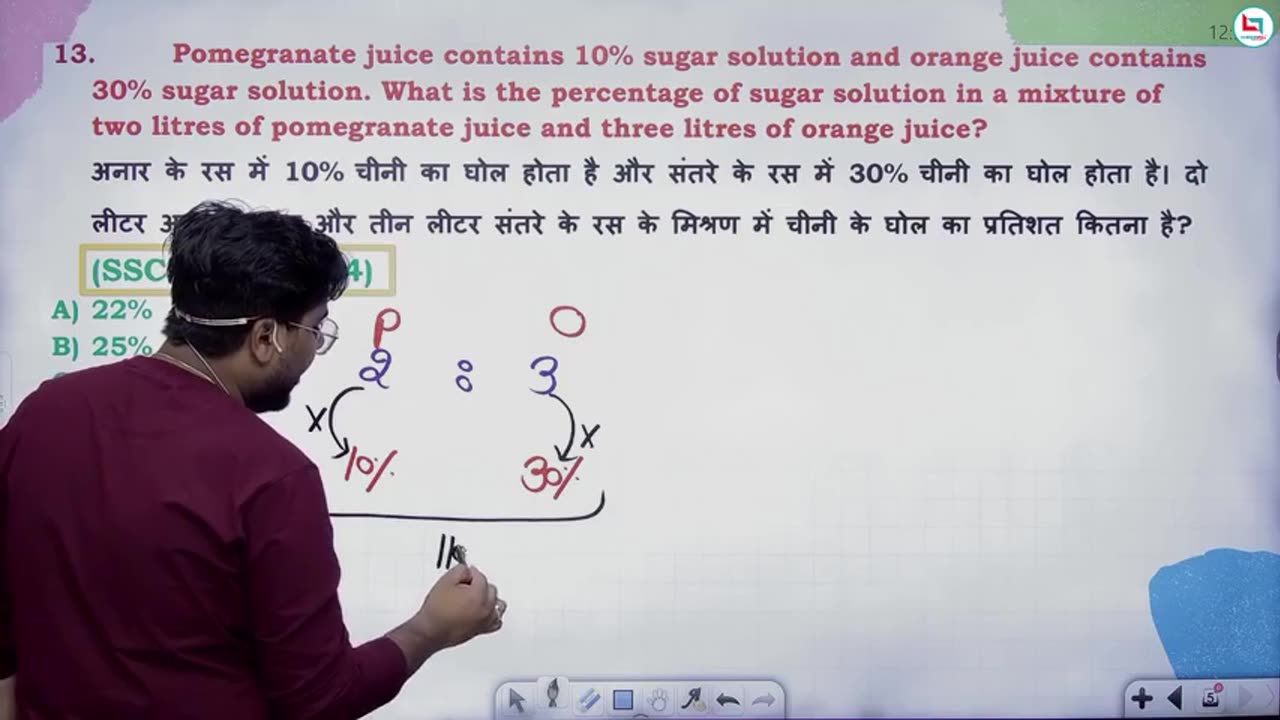 12:
13. Pomegranate juice contains 10% sugar solution and orange juice contains
30% sugar solution. What is the percentage of sugar solution in a mixture of
two litres of pomegranate juice and three litres of orange juice?
अनार के रस में 10% चीनी का घोल होता है और संतरे के रस में 30% चीनी का घोल होता है। दो
लीटर और तीन लीटर संतरे के रस के मिश्रण में चीनी के घोल का प्रतिशत कितना है?
(SSC 4)
A) 22%
B) 25%
P O
2 : 3
x x
10% 30%
5